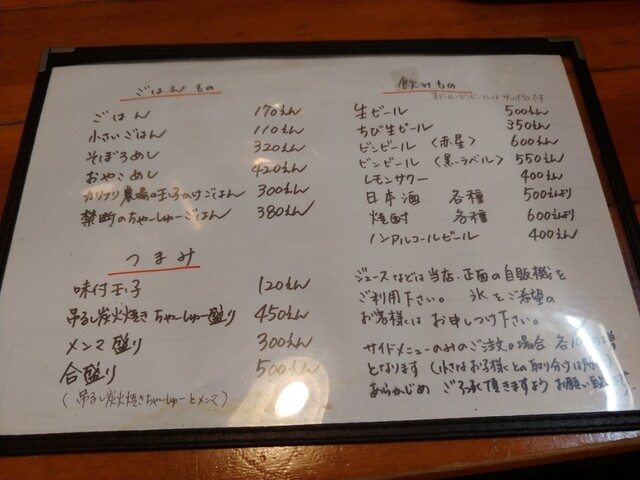 ごはんもの
ごはん 170えん
小さいごはん 110えん
そぼろめし 320えん
おやこめし 420えん
カリフリ農場の玉子かけごはん 300えん
禁断のちゃーしゅーごはん 380えん
つまみ
味付玉子 120えん
吊るし炭火焼きちゃーしゅー盛り 450えん
メンマ盛り 300えん
合盛り 500えん
(吊るし炭火焼きちゃーしゅーとメンマ)
飲みもの
生ビール・ビンビールは サッポロです
生ビール 500えん
ちび生ビール 350えん
ビンビール〈赤星〉 600えん
ビンビール〈黒ラベル〉 550えん
レモンサワー 400えん
日本酒 各種 500えんより
焼酎 各種 600えんより
ノンアルコールビール 400えん
ジュースなどは当店正面の自販機を
ご利用下さい。 氷をご希望の
お客様は お申しつけ下さい。
サイドメニューのみのご注文の場合 各10 増
となります(小さなお子様との取り分けは
あらかじめ ご了承頂きますよう お願い致 す